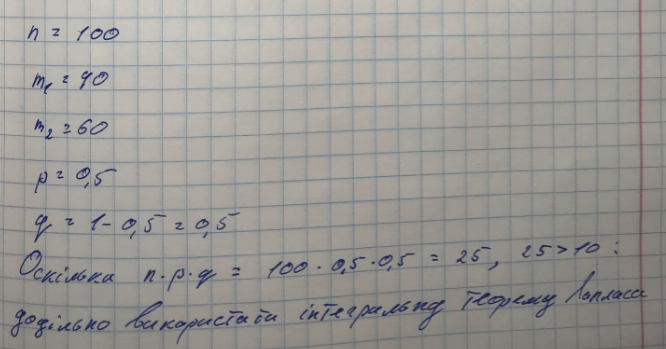 n = 100
m₁ = 40
m₂ = 60
p = 0,5
q = 1 - 0,5 = 0,5
Оскільки n · p · q = 100 · 0,5 · 0,5 = 25, 25 > 10 :
доцільно використати інтегральну теорему Лапласа